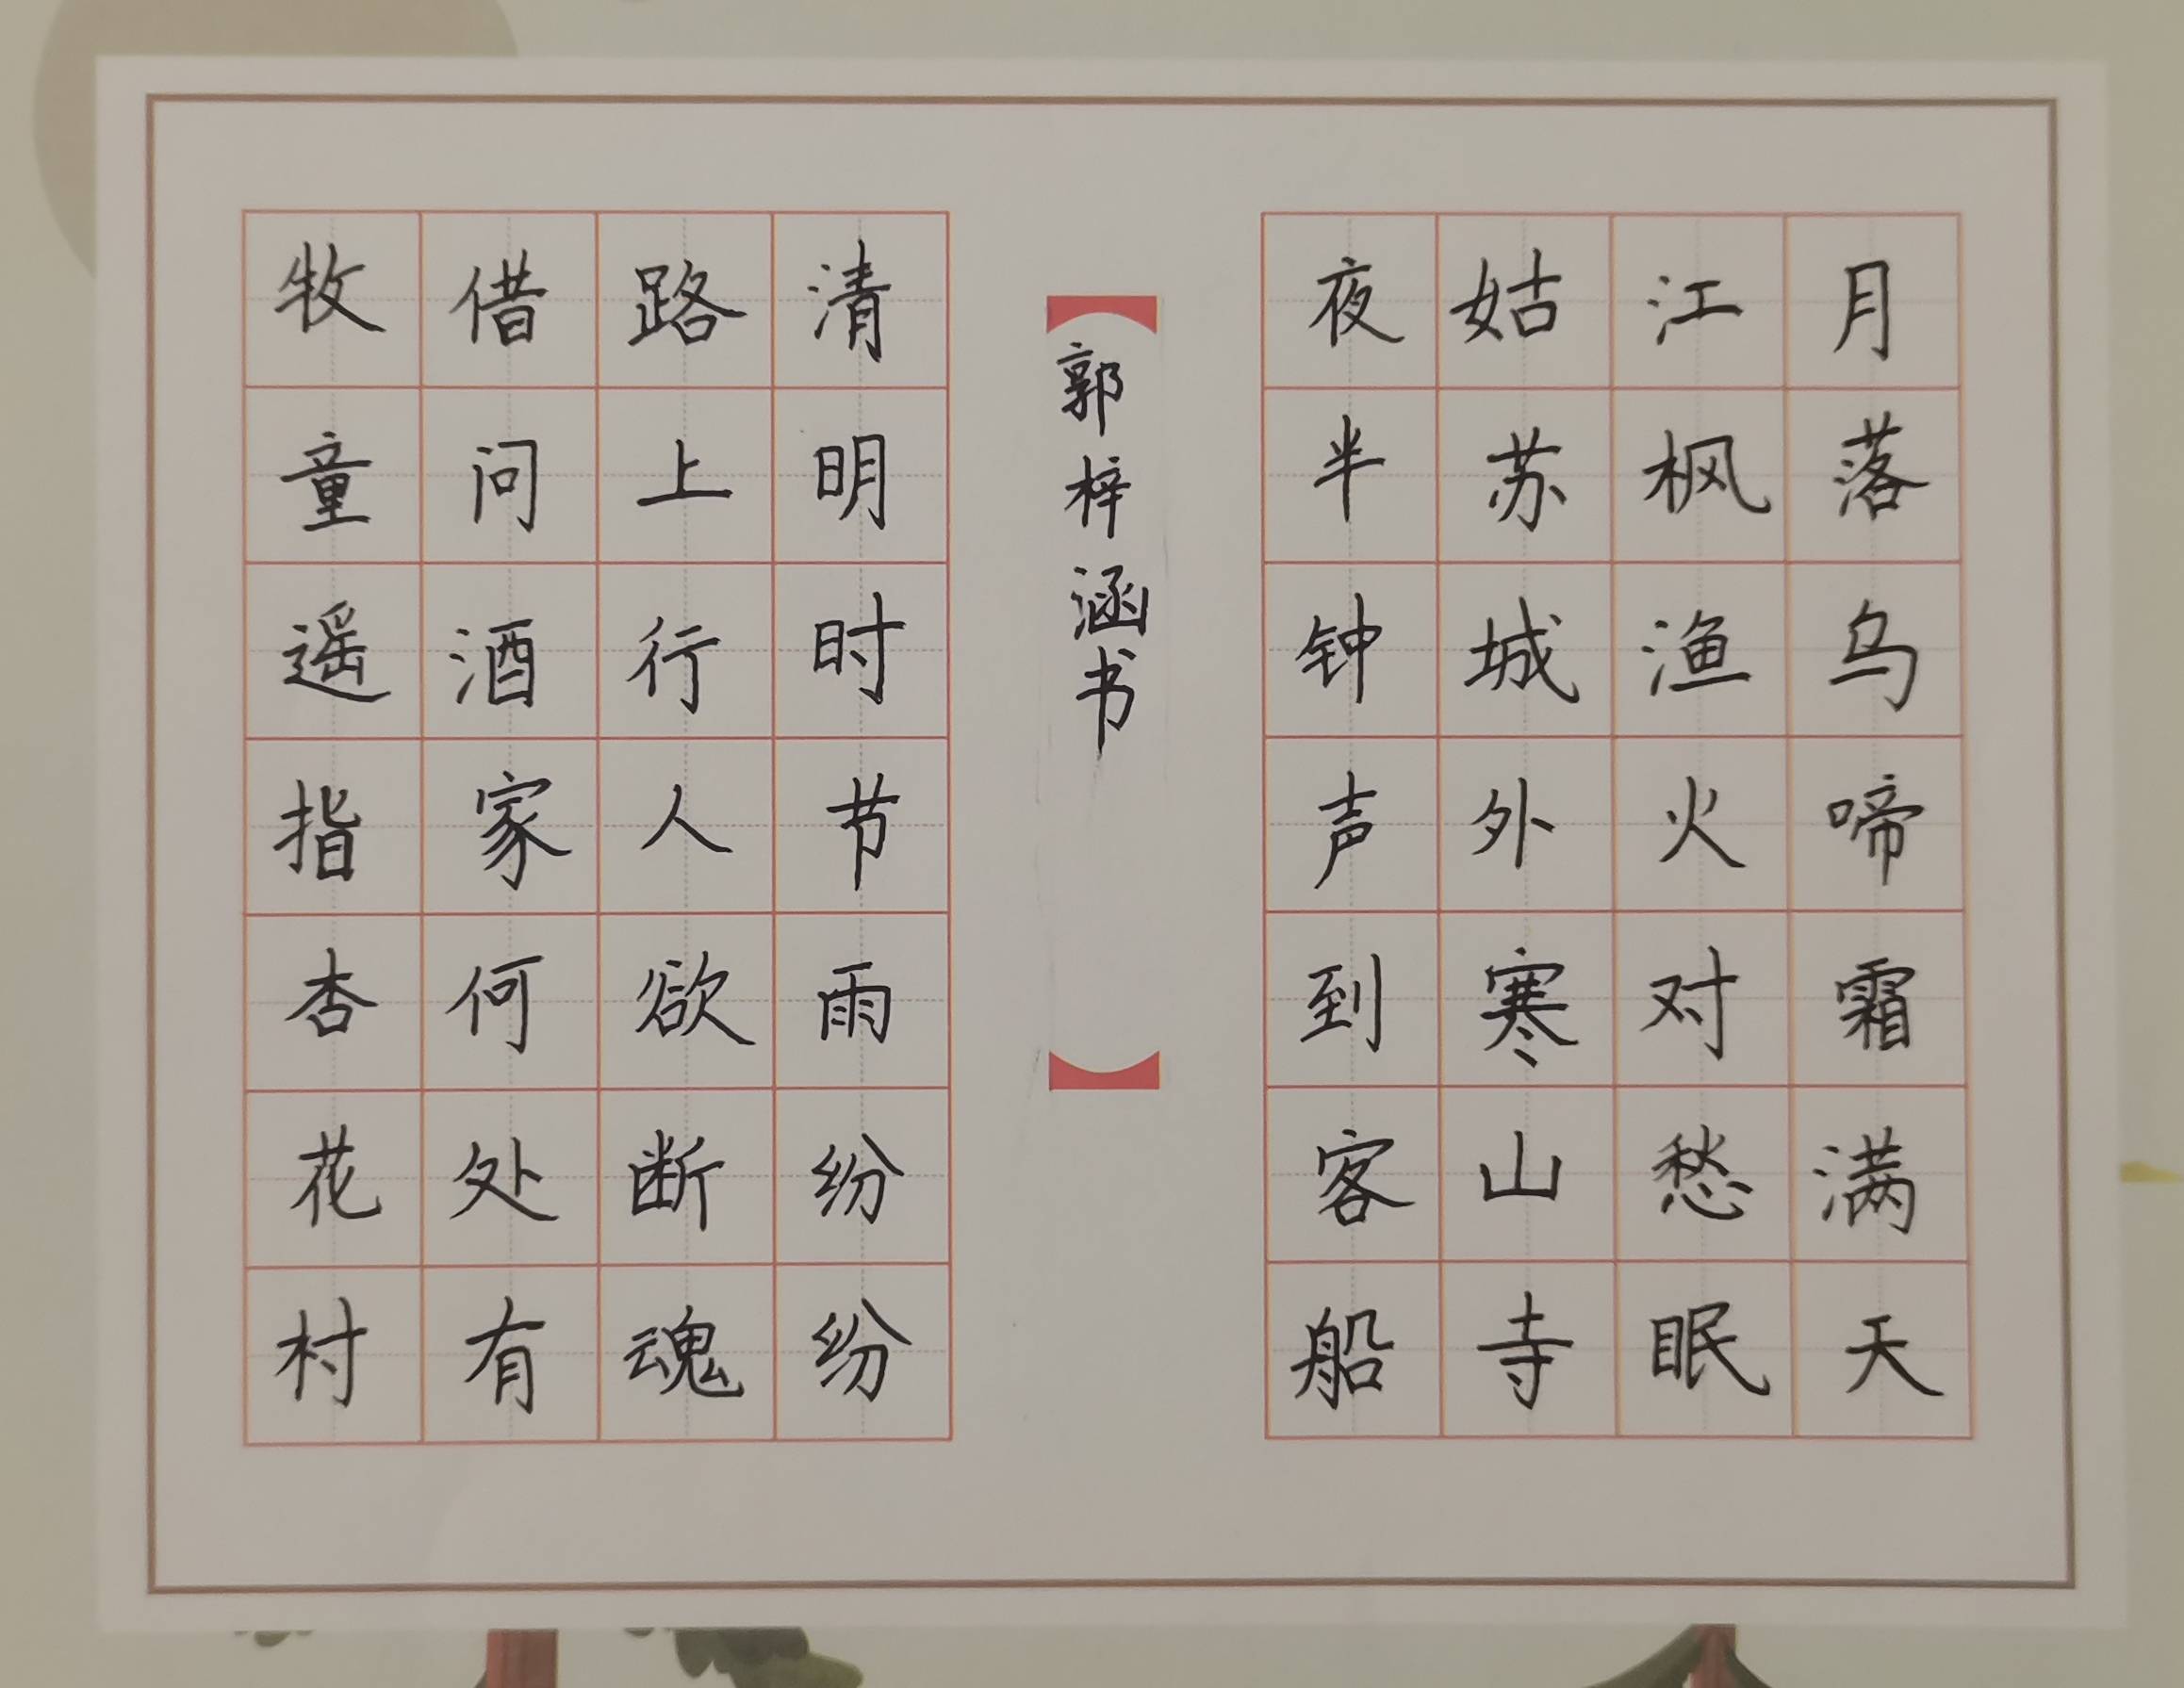 月落乌啼霜满天
江枫渔火对愁眠
姑苏城外寒山寺
夜半钟声到客船
郭梓涵书
清明时节雨纷纷
路上行人欲断魂
借问酒家何处有
牧童遥指杏花村